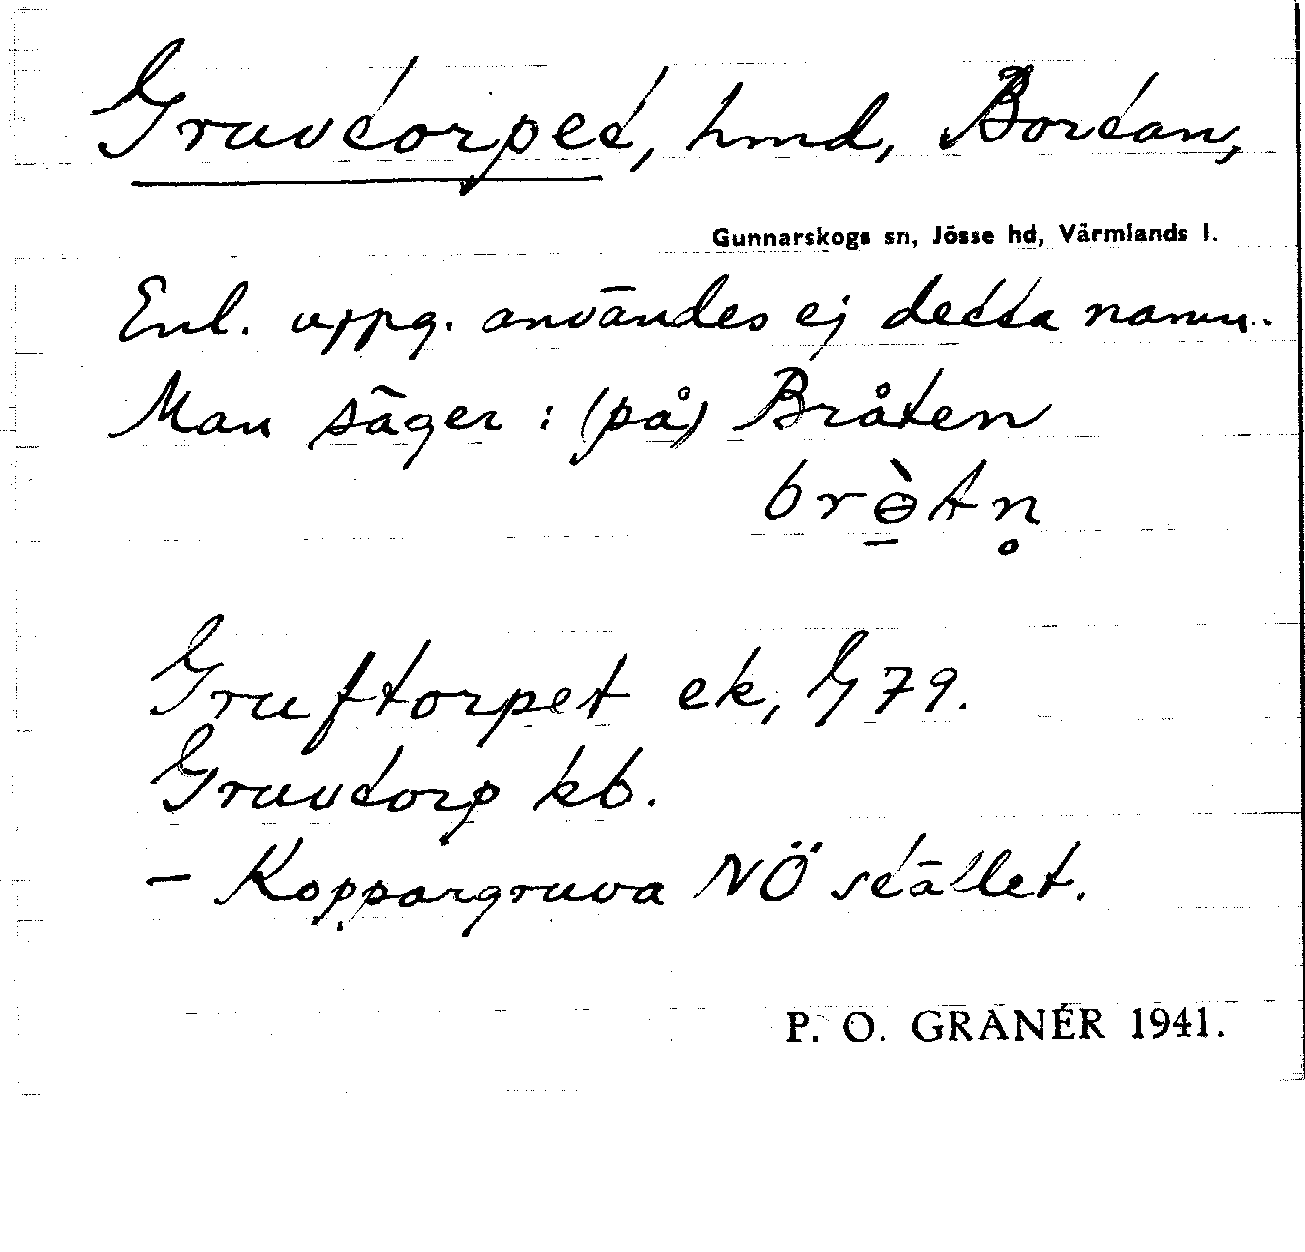 Gruvtorpet, hmd, Bortan,
Gunnarskogs sn, Jösse hd, Värmlands l.
Enl. uppg. användes ej detta namn.
Man säger: (på) Bråten
brɵ̠̀tn̥
Gruftorpet ek, G 79.
Gruvtorp kb.
– Koppargruva NÖ stället.
P. O. GRANÉR 1941.